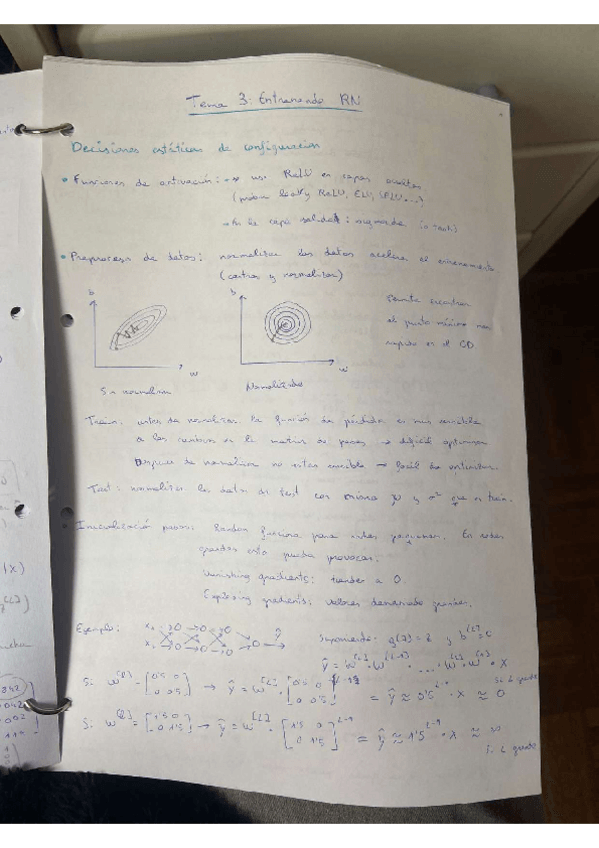 Tema 3: Entrenando RN
Decisiones estáticas de configuración
• Funciones de activación: → usar ReLU en capas ocultas
(probar leaky ReLU, ELU, ...)
→ En la capa salida: sigmoide (o tanh)
• Preproceso de datos: normalizar los datos acelera el entrenamiento
(centrar y normalizar)
b
w
Sin normalizar
b
w
Normalizado
encontrar
el punto mínimo más
rápido es el GD
Train: antes de normalizar la función de pérdida es más sensible
a los cambios en la matriz de pesos → difícil optimizar
Después de normalizar no es tan sensible → fácil de optimizar
Test: normalizar los datos de test con misma μ y σ² que en train.
Inicialización pesos: Random funciona para redes pequeñas. En redes
grandes esto puede provocar:
Vanishing gradients: tender a 0.
Exploding gradients: valores demasiado grandes.
Ejemplo:
ŷ
Suponiendo g(z)=z y b^[L]=0
ŷ = w^[L] · w^[L-1] · ... · w^[2] · w^[1] · x
Si w^[l] = [0'5 0 / 0 0'5] → ŷ = w^[L] · [0'5 0 / 0 0'5]^L-1 = ŷ ≈ 0'5^L-1 · x ≈ 0
Si L grande
Si w^[l] = [1'5 0 / 0 1'5] → ŷ = w^[L] · [1'5 0 / 0 1'5]^L-1 = ŷ ≈ 1'5^L-1 · x ≈ ∞
Si L grande